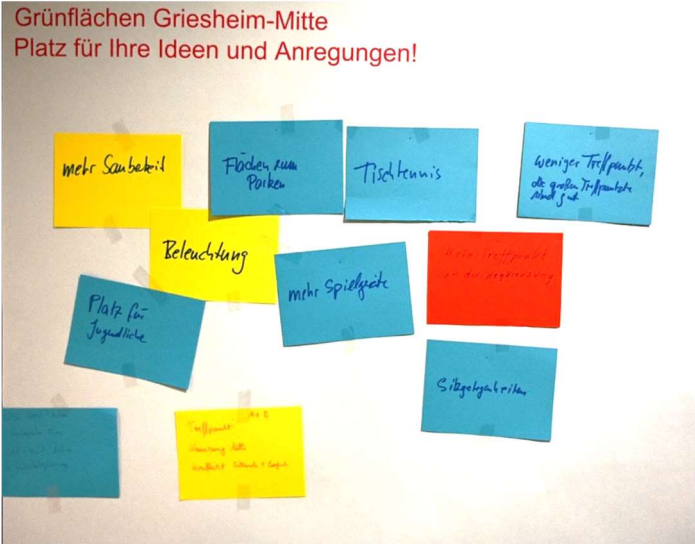 Grünflächen Griesheim-Mitte
Platz für Ihre Ideen und Anregungen!
mehr Sauberkeit
Flächen zum
Parken
Tischtennis
Weniger Treffpunkt,
die großen Treffpunkte
sind gut
Beleuchtung
mehr Spielgeräte
Kein Treffpunkt
an der
Platz für
Jugendliche
Sitzgelegenheiten
Treffpunkt